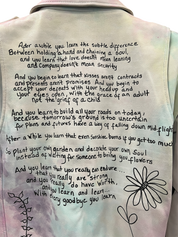 After a while you learn the subtle difference
Between holding a hand and chaining a soul,
and you learn that love doesn't mean leaning
and company doesn't mean security
And you begin to learn that kisses aren't contracts
and presents aren't promises. And you begin to
accept your defeats with your head up and
your eyes open, with the grace of an adult
not the grief of a child
And you learn to build all your roads on today,
because tomorrow's ground is too uncertain
for plans and futures have a way of falling down mid flight
After a while you learn that even sunshine burns if you get too much
So plant your own garden and decorate your own Soul
instead of waiting for someone to bring you flowers
And you learn that you really can endure
that you really are strong
and you really do have worth
and you learn and learn...
With every goodbye you learn